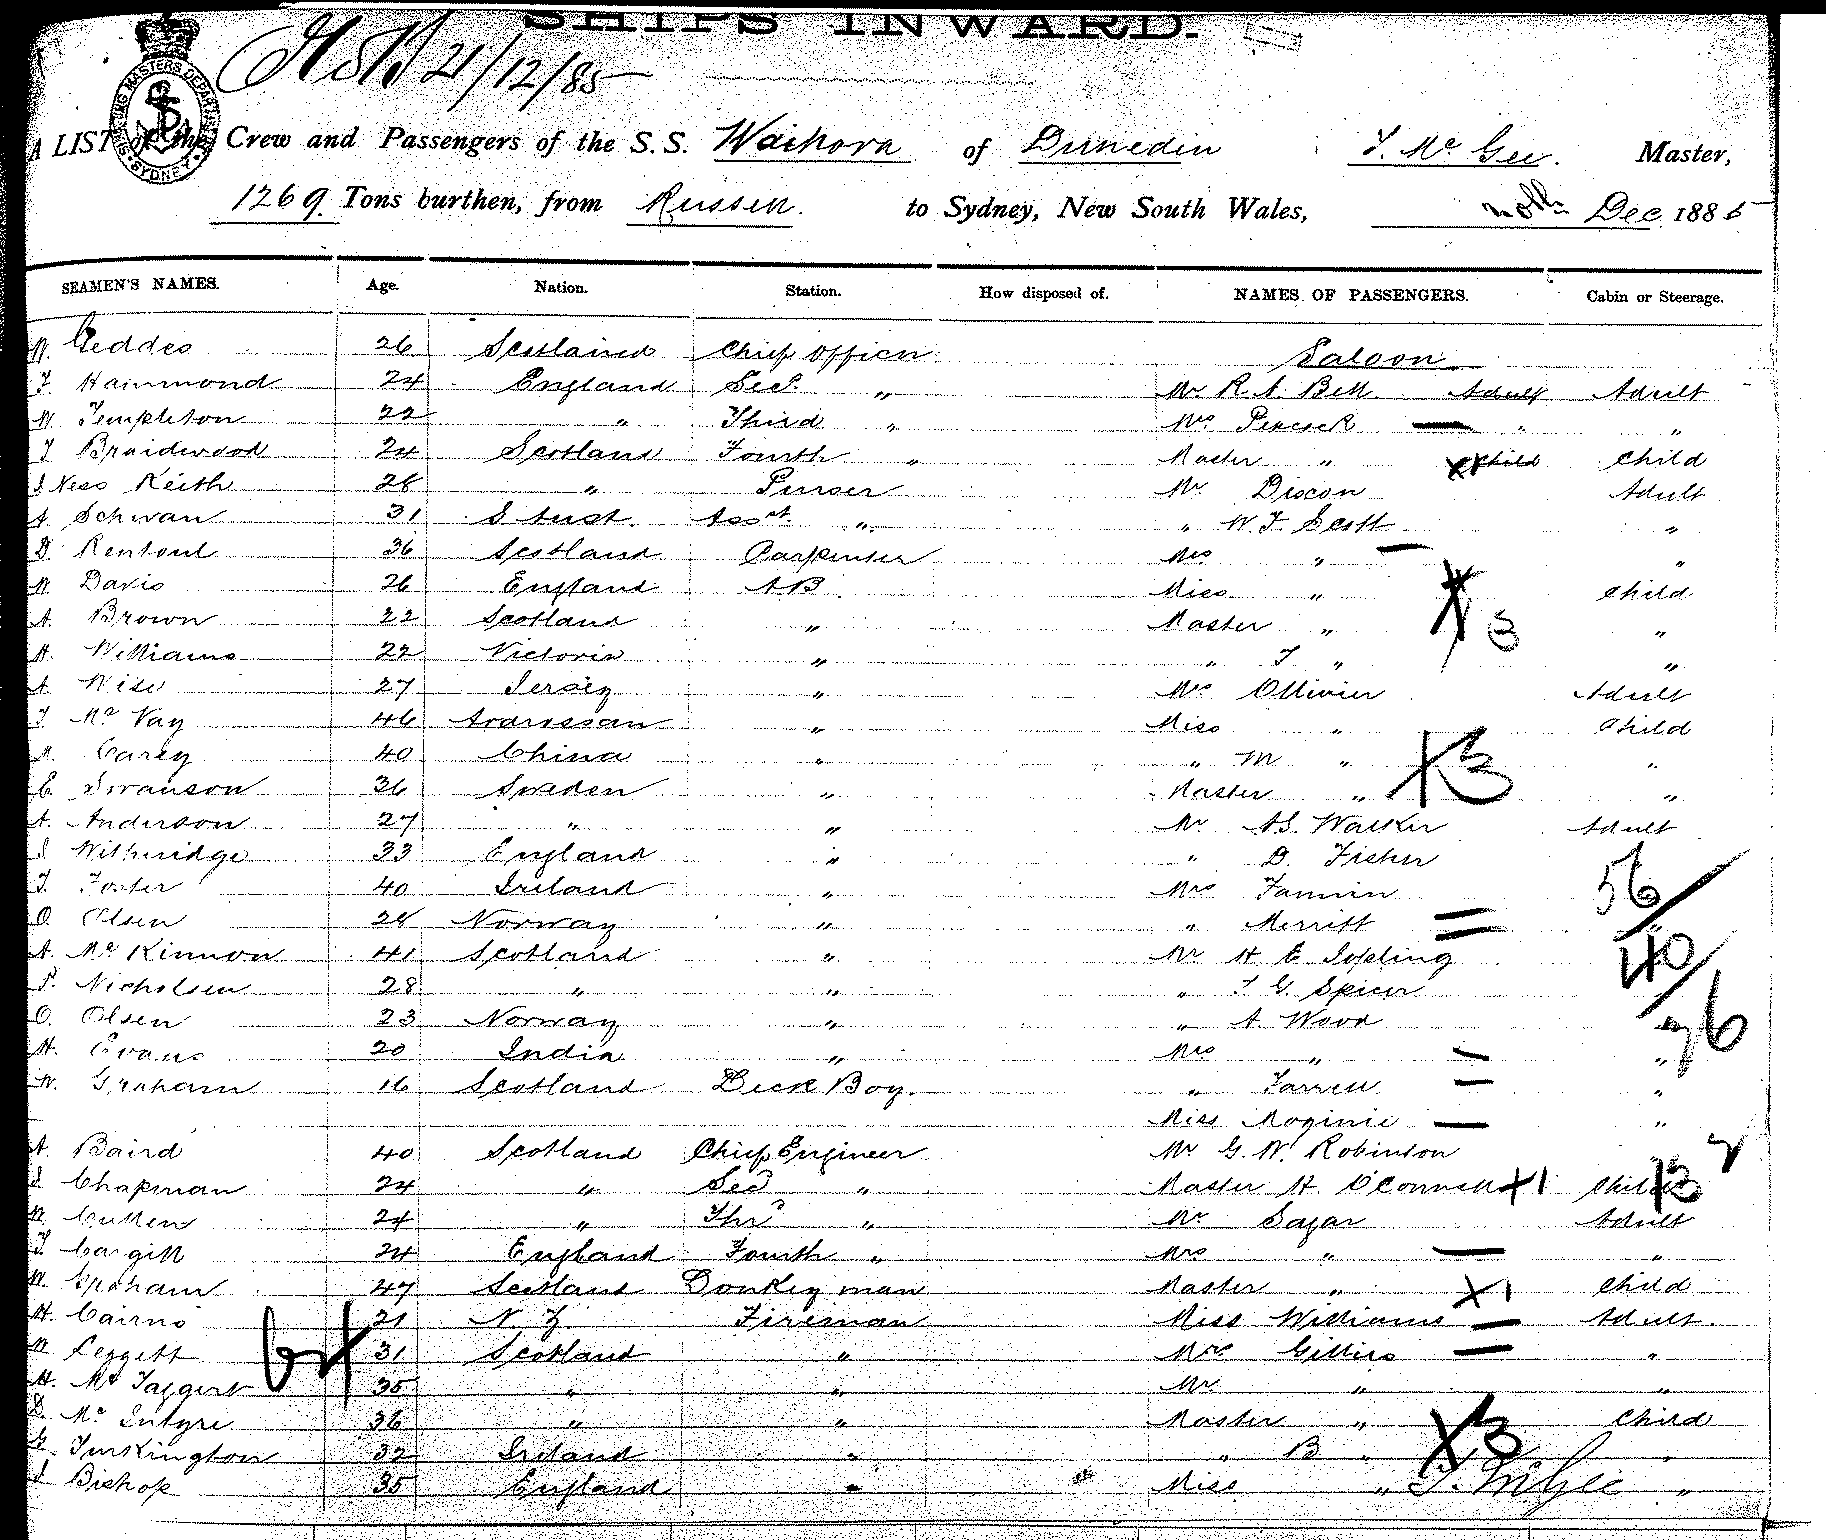 SHIPS INWARD.
21/12/85
SHIPPING MASTERS DEPART SYDNEY
A LIST of the Crew and Passengers of the S.S. Waihora of Dunedin J. McGee. Master,
1269 Tons burthen, from Russell to Sydney, New South Wales, Dec 1885
SEAMEN'S NAMES. Age. Nation. Station. How disposed of. NAMES OF PASSENGERS. Cabin or Steerage.
W. Geddes 26 Scotland Chief Officer Saloon
J Hammond 24 England Secd „ Mr R. A. Bell Adult Adult
W Templeton 22 „ Third „ Mrs Peacock „ „
J Braidwood 24 Scotland Fourth „ Master „ Child Child
J Ness Keith 28 „ Purser Mr Dixon Adult
A. Schwan 31 S Aust. Asst. „ „ W. J. Scott „
D. Rentoul 36 Scotland Carpenter Mrs „ „
W Davis 26 England AB Miss „ Child
A. Brown 22 Scotland „ Master „ 3 „
H. Williams 22 Victoria „ „ J „ „
A. Wise 27 Jersey „ Mrs Ollivier Adult
J. McVay 46 Ardrossan „ Miss „ Child
Carey 40 China „ „ M „ X3 „
C. Swanson 36 Sweden „ Master „ „
A. Anderson 27 „ „ Mr A.S. Walker Adult
J Witheridge 33 England „ „ D. Fisher
J. Foster 40 Ireland „ Mrs Fannin 56
O. Olsen 28 Norway „ „ Merritt
A. McKinnon 41 Scotland „ Mr H E Jopling 40
P. Nicholsen 28 „ „ „ J G. Spicer
O. Olsen 23 Norway „ „ A. Wood
H. Evans 20 India „ Mrs „ „
W. Graham 16 Scotland Deck Boy. „ Farrell „
Miss Moginie „
A. Baird 40 Scotland Chief Engineer Mr G. W. Robinson
J. Chapman 24 „ Secd „ Master H. O'Connell X1 Child
W Cullen 24 „ Thrd „ Mr Sagar Adult
J. Cargill 24 England Fourth „ Mrs „ „
W. Graham 47 Scotland Donkeyman Master „ X1 Child
H. Cairns 21 N. Z. Fireman Miss Williams Adult.
W Leggett 31 Scotland „ Mrs Gillies „
H. McTaggert 35 „ „ Mr „ „
D. McIntyre 36 „ „ Master „ Child
G. Turkington 32 Ireland „ „ B „ X3 „
J Bishop 35 England „ Miss „ „
64
J. McGee